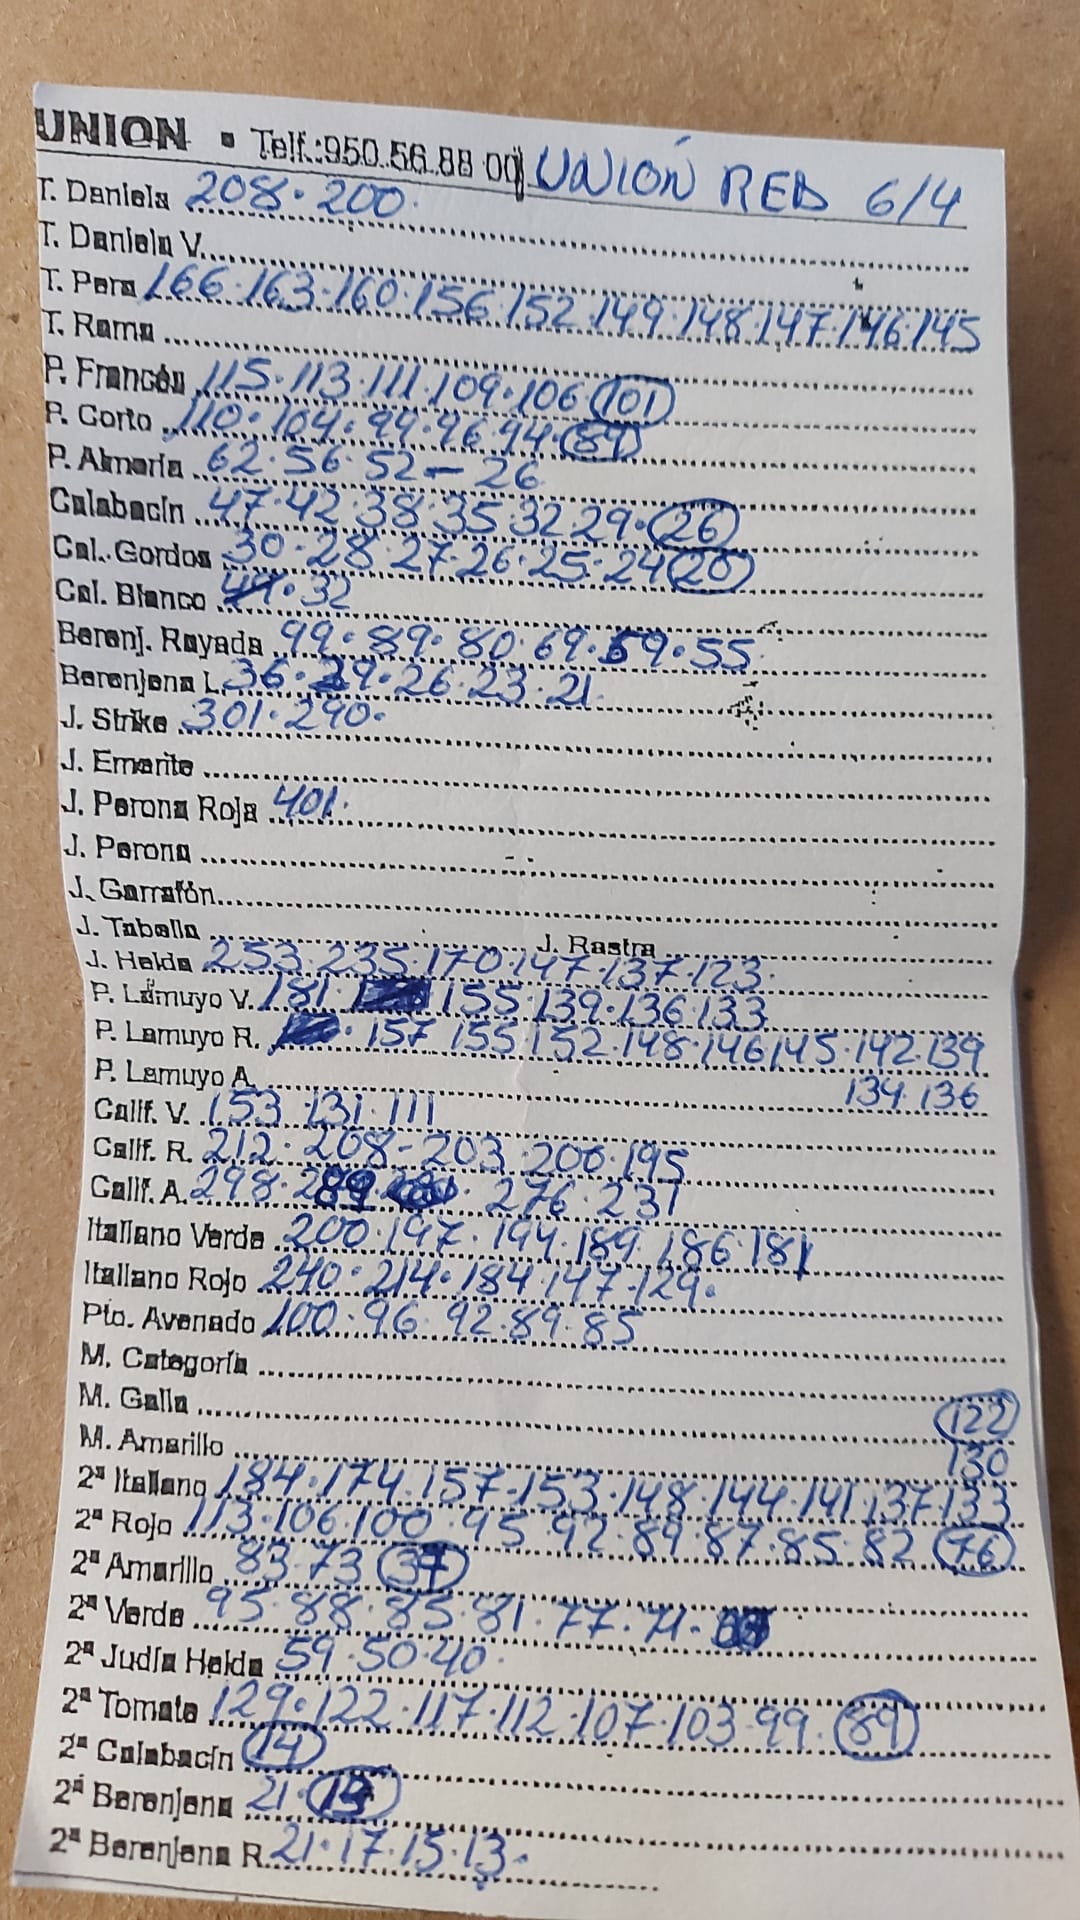 UNION · Telf.:950.56.88 00 UNIÓN RED 6/4
T. Daniela 208·200·
T. Daniela V.
T. Pera 166·163·160·156·152·149·148·147·146·145
T. Rama
P. Francés 115·113·111·109·106 (101)
P. Corto 110·104·99·96·94·(89)
P. Almería 62·56·52-26
Calabacín 47·42·38·35·32·29·(26)
Cal. Gordos 30·28·27·26·25·24(20)
Cal. Blanco 32
Berenj. Rayada 99·89·80·69·59·55
Berenjena L. 36·29·26·23·21
J. Strike 301·290·
J. Emerite
J. Perona Roja 401·
J. Perona
J. Garrafón
J. Tabella J. Rastra
J. Helda 253·235·170·147·137·123
P. Lamuyo V. 181· 155·139·136·133
P. Lamuyo R. ·157 155 152·148·146 145·142·139
P. Lamuyo A. 134·136
Calif. V. 153·131·111
Calif. R. 212·208-203·200·195
Calif. A. 298·289· 276·231
Italiano Verde 200·197·194·189·186·181
Italiano Rojo 240·214·184·147·129·
Pto. Avenado 100·96·92·89·85
M. Categoría
M. Galla (122)
M. Amarillo 130
2ª Italiano 184·174·157-153·148·144·141·137·133
2ª Rojo 113·106·100·95·92·89·87·85·82 (76)
2ª Amarillo 83·73
2ª Verde 95·88·85·81·77·71·
2ª Judía Helda 59·50·40·
2ª Tomate 129·122·117·112·107·103·99·(89)
2ª Calabacín (14)
2ª Berenjena 21·
2ª Berenjena R. 21·17·15·13·